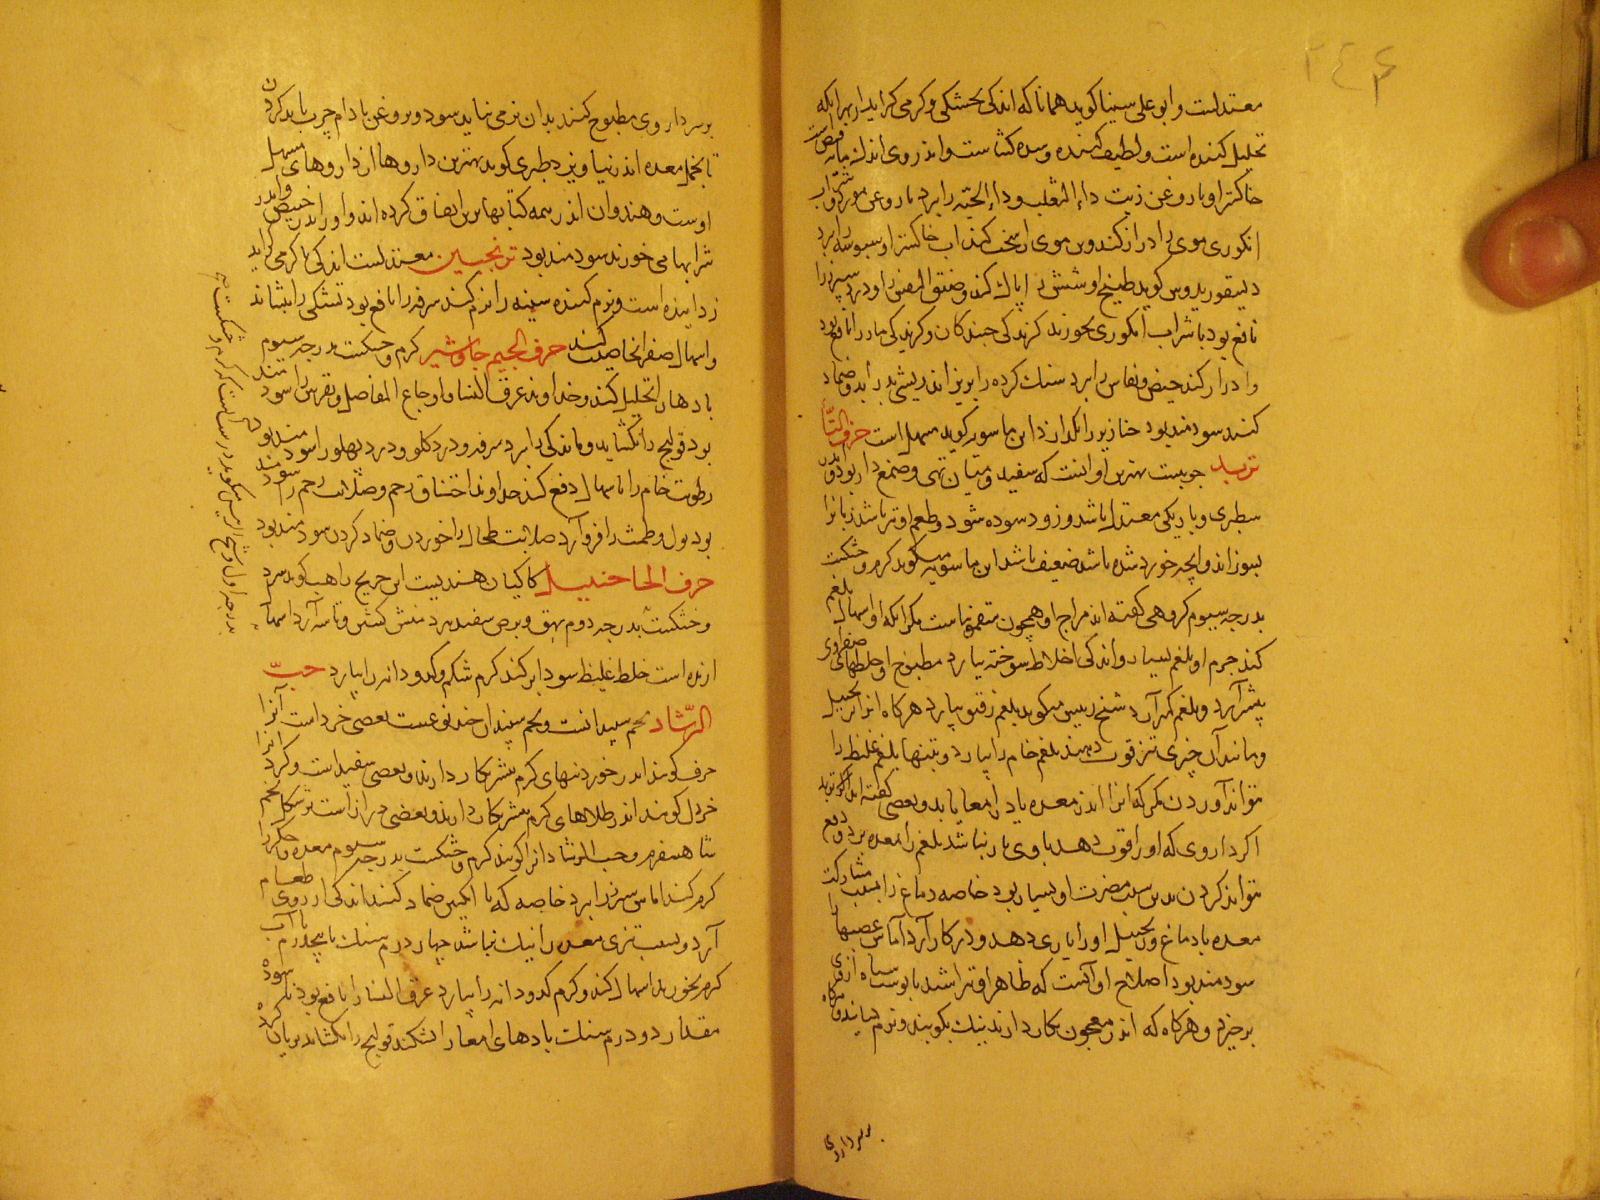 ۲۴۶
معتدلست و ابوعلی سینا کوید همانا که اندکی بخشکی و کرمی کراید از بهر انکه
تحلیل کننده است و لطیف کننده و سده کشاست و اندر وی اندک مایه قبض است
خاکستر او با روغن زیت داء الثعلب و داء الحیّه را ببرد با روغن مورد و شراب
انکوری موی را دراز کند و بن موی را سخت کند آب خاکستر او سبوسه را ببرد
دیسقوریدوس کوید طبیخ او شش را پاک کند و ضیق النفس را و درد سپرز را
نافع بود با شراب انکوری بخورند کزیدکی جنبندکان و کزیدکی مار را نافع بود
و ادرار کند حیض و نفاس را ببرد سنک کرده را بریزاند ریشی بد را بدو ضماد
کنند سودمند بود خنازیر را بکدازد ابن ماسویه کوید مسهل است حرف التّا
تربد جوبیست بهترین او انست که سفید و میان تهی و صمغ دار بود و اندر
سطبری و باریکی معتدل باشد و زود سوده شود و طعم او تیز باشد زبانرا
بسوزاند و انچه خورد شده باشد ضعیف باشد ابن ماسویه میکوید کرم و خشکست
بدرجه سیوم کروهی کفته اند مزاج او همچون سقمونیاست مکر انکه او اسهال بلغم
کند جرم او بلغم بسیار و اندکی اخلاط سوخته بیارد مطبوخ او خلطهای صفراوی
بیشتر آرد و بلغم کمتر آرد شیخ رییس میکوید بلغم رقیق بیارد هر کاه انرا زنجبیل
و مانند آن چیزی تیز قوت دهند بلغم خام را بیارد و بتنها بلغم غلیظ را
نتواند آوردن مکر که انرا اندر معده یا در امعا یابد و بعضی کفته اند که تربد
اکر داروی که او را قوت دهد با وی یار نباشد بلغم را معده برد و دفع
نتواند کردن بدین سبب مضرت او بسیار بود خاصه دماغ را بسبب مشارکت
معده با دماغ و زنجبیل او را یاری دهد و در کار آرد آماس عصبها را
سودمند بود اصلاح او آنست که ظاهر او بتراشند تا پوست سیاه از وی
برخیزد و هر کاه که اندر معجون بکار دارند نیک بکوبند و نرم بسایند و هر کاه
بر سر داروی
بر سر داروی مطبوخ کنند بدان نرمی نباید سود و بروغن بادام چرب باید کردن
تا بخمل معده اندر نیاویزد طبری کوید بهترین داروها از داروهای مسهل
اوست و هندوان اندر همه کتابها برین اتفاق کرده اند و او را اندر خبیص و اندر
شرابها می خورند سودمند بود ترنجبین معتدلست اندکی با کرمی کراید
زداینده است و نرم کننده سینه را نرم کند سرفه را نافع بود تشنکی را بنشاند
و اسهال صفرا بخاصیت کند حرف الجیم جاوشیر کرم و خشکست بدرجه سیوم
بادها را تحلیل کند و خداوند عرق النسا و اوجاع المفاصل و نقرس را سودمند
بود قولنج را بکشاید و ماندکی را ببرد سرفه و درد کلو و درد پهلو را سودمند بود
رطوبت خام را باسهال دفع کند خداوند اختناق رحم و صلابت رحم را سودمند
بود بول و طمث را فرو آرد صلابت طحال را خوردن و ضماد کردن سودمند بود
حرف الحا حب نیل کاکیان هندیست ابن جریح راهب کوید سرد
و خشکست بدرجه دوم بهق و برص سفید ببرد منش کشتن و تاسه آرد اسهال
ارنده است خلط غلیظ سودا بر کند کرم شکم و کدو دانه را بیارد حبّ
الرّشاد تخم سپندانست و تخم سپندان چند نوعست بعضی خرد است آنرا
حرف کویند اندر خوردنیهای کرم بیشتر بکار دارند و بعضی سفید است و کرد آنرا
خردل کویند اندر طلاهای کرم بیشتر بکار دارند و بعضی دراز است بر شکل تخم
شاهسفرم و حب الرشاد انرا کویند کرم و خشکست بدرجه سیوم معده و جکر را
کرم کند اماس سپرز را ببرد خاصه که با انکبین ضماد کنند اندکی ارزوی طعام
آرد و بسبب تیزی معده را نیک نباشد چهار درم سنک تا پنج درم با آب
کرم بخورند اسهال کند و کرم کدو دانه را بیارد عرق النسا را نافع بود نکوسوده
مقدار دو درم سنک بادهای امعا را بشکند قولنج را بکشاید بریان کرده